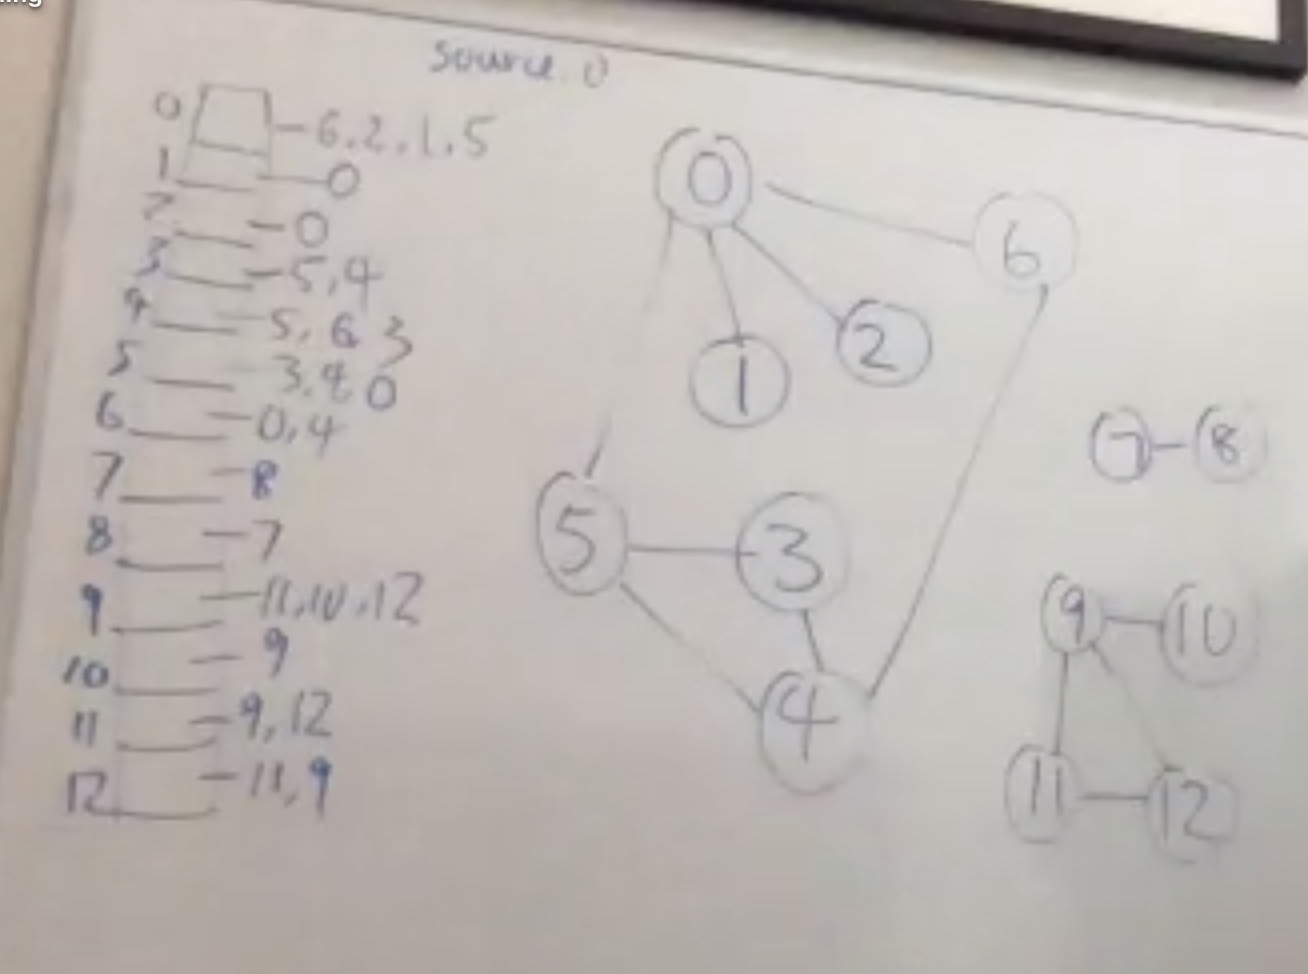 ning
Source 0
0 - 6, 2, 1, 5
1 - 0
2 - 0
3 - 5, 4
4 - 5, 6 3
5 3, 4 0
6 - 0, 4
7 - 8
8 - 7
9 - 11, 10, 12
10 - 9
11 - 9, 12
12 - 11, 9
0
6
1
2
7 - 8
5
3
9
10
4
11
12